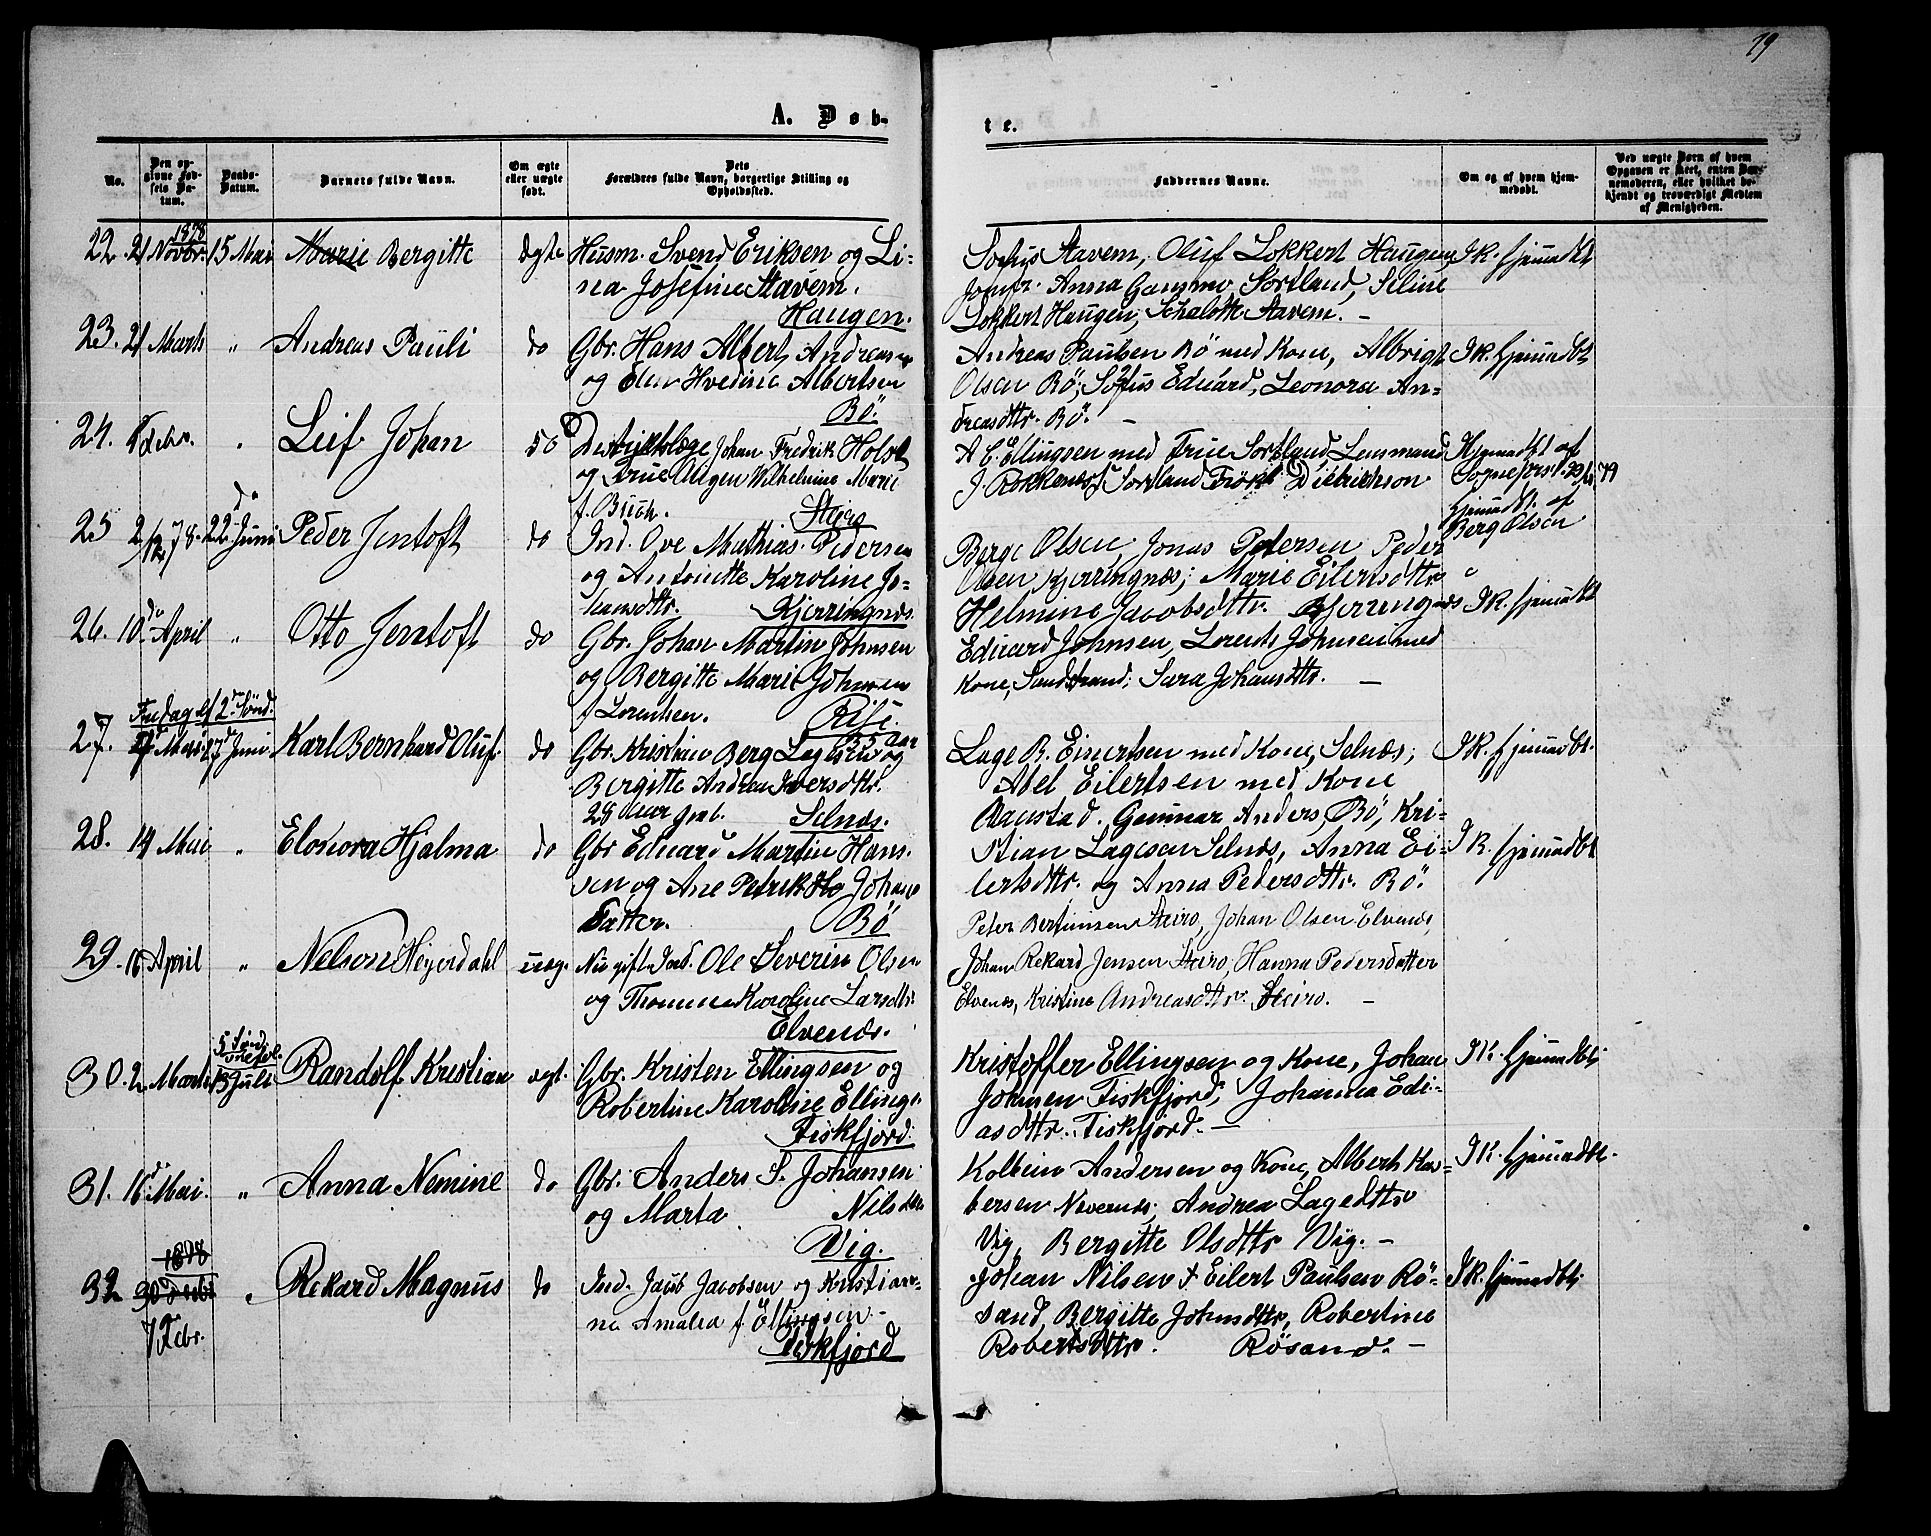 79
A. Døb-
te.
No.
Den op-
givne Fød-
sels Da-
tum.
Daabs-
Datum.
Barnets fulde Navn.
Om ægte
eller uægte
født.
Dets
Forældres fulde Navn, borgerlige Stilling og
Opholdssted.
Faddernes Navne.
Om og af hvem hjem-
medøbt.
Ved uægte Børn af hvem
Opgaven er skeet, enten Bar-
nemoderen, eller hvilket be-
kjendt og troværdigt Medlem
af Menigheden.
1878
22. 21 Novbr. 15 Mai Marie Bergitte ægte Husm. Svend Eriksen og Li-
na Josefine Stavem.
Haugen.
Sofus Stavem, Oluf Lokkert Haugen,
Jomfr. Anna Gammo Sortland, Seline
Lokkert Haugen, Schalotte Stavem. -
Ik. hjemmedbt
23. 21 Marts " Andreas Pauli do Gbr. Hans Albert Andreasen
og Elen Hvedine Albertsen
Bö.
Andreas Paulsen Bö med Kone, Albrigt
Olsen Bö, Sofus Eduard, Leonora An-
dreasdtr. Bö. -
Ik. hjemmedbt
24. Febr. " Leif Johan do Distriktslæge Johan Fredrik Holst
og Frue Aagen Wilhelmine Marie
f. Buch. Steiro
A C. Ellingsen med Frue Sortland Lensmand
J. Rokkenes, Sortland Frök. Diedrichson
Hjemmedbt af
Sognepræst
25 2/12 78. 22 d Juni Peder Jentoft do Ind. Ove Mathias Pedersen
og Antonette Karoline Jo-
hansdtr. Kjerringnes.
Berge Olsen, Jonas Petersen Peder
Olsen Kjerringnæs; Marie Eilertsdtr
Helmine Jacobsdtr. Kjerringnes
hjemmedbt. af
Berg Olsen
26. 10 d April " Otto Jentoft do Gbr. Johan Martin Johnsen
og Bergitte Marie Johnsen
f Lorentsen. Rise.
Eduard Johnsen, Lorents Johnsen med
Kone, Sandstrand; Sara Johansdtr. -
Ik. hjemmedbt
Fredag ef 2 d Sönd.
27. Mai 27 d Juni Karl Bernhard Oluf. do Gbr. Kristian Berg Lagesen 35 aar og
Bergitte Andrea Iversdtr.
28 aar gml. Selnæs.
Lage B. Einertsen med Kone, Selnæs;
Abel Eilertsen med Kone
Aanstad. Gunnar Anders, Bö, Kri-
stian Lagesen Selnæs, Anna Ei-
lertsdtr. og Anna Pedersdtr. Bö.
Ik. hjemmedbt.
28. 14 Mai " Elonora Hjalma do Gbr Eduard Martin Hans-
sen og Ane Petrikke Johans
Datter. Bö
Ik. hjemmedbt
29. 16 April " Nelson Heyerdahl uæg. Nu gift Ind. Ole Severin Olsen
og Thomine Karoline Larsdtr.
Elvenæs.
Peter Bertinsen Steiro, Johan Olsen Elvenes,
Johan Rekard Jensen Steiro, Hanna Pedersdatter
Elvenæs, Kristine Andreasdtr. Steiro. -
30. 2 Marts 13 Juli Randolf Kristian ægt. Gbr. Kristen Ellingsen og
Robertine Karoline Ellings-
Fiskfjord.
Kristoffer Ellingsen og Kone, Johan
Johnsen Fiskfjord, Johanna Edi-
asdtr. Fiskfjord. -
Ik. hjemmedbt
31. 16 d Mai. " Anna Nemine do Gbr. Anders S. Johansen
og Marta Nilsdtr
Vig.
Kolbein Andersen og Kone, Albert Has-
bersen Nevernes, Andrea Lagedtr
Vig, Bergitte Olsdtr Vig. -
Ik. hjemmedbt.
1878
32 30 Decbr 7 Febr. " Rekard Magnus do Ind. Jacob Jacobsen og Kristian-
na Amalia f. Ellingsen -
Fiskfjord
Johan Nilsen + Eilert Paulsen Rö-
sand, Bergitte Johnsdtr, Robertine
Robertsdtr. Rösand. -
Ik. hjemmedbt